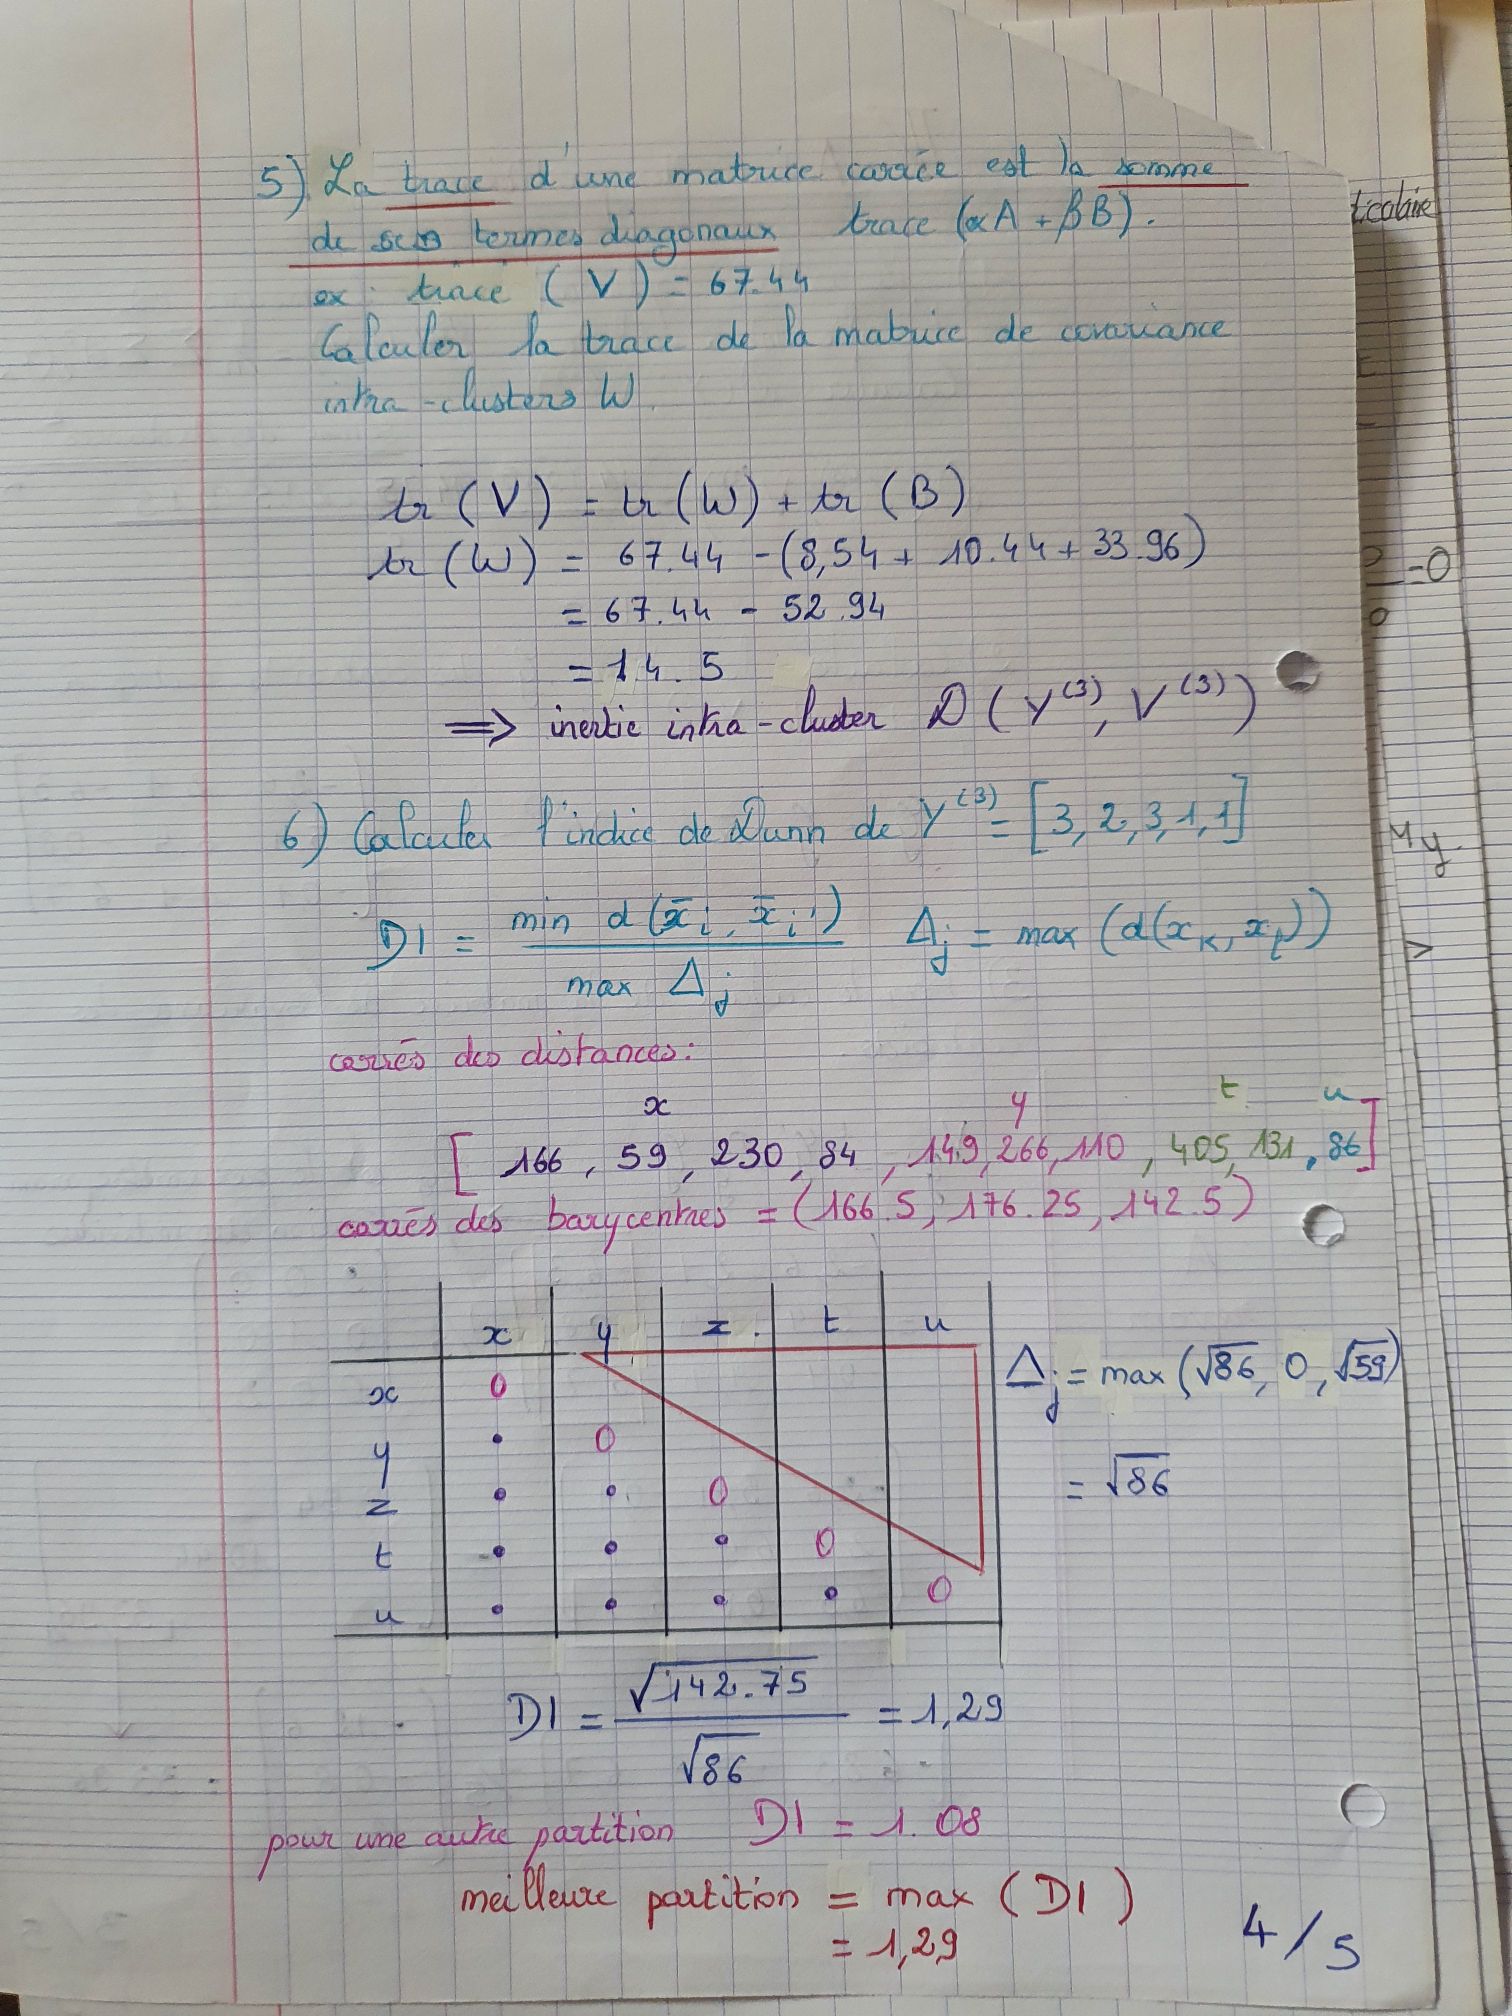 5) La trace d'une matrice carrée est la somme
de ses termes diagonaux trace (αA + βB).
ex: trace (V) = 67.44
Calculer la trace de la matrice de covariance
intra-clusters W.
tr (V) = tr (W) + tr (B)
tr (W) = 67.44 - (8,54 + 10.44 + 33.96)
= 67.44 - 52.94
= 14.5
⟹ inertie intra-cluster D (Y⁽³⁾, V⁽³⁾)
6) Calculer l'indice de Dunn de Y⁽³⁾ = [3, 2, 3, 1, 1]
DI = min d(x̄ᵢ, x̄ᵢ') / max Δⱼ Δⱼ = max (d(xₖ, xₗ))
carrés des distances:
x y t u
[166, 59, 230, 84, 149, 266, 110, 405, 131, 86]
carrés des barycentres = (166.5, 176.25, 142.5)
x y z t u
x 0
y • 0
z • • 0
t • • • 0
u • • • • 0
Δⱼ = max (√86, 0, √59)
= √86
DI = √142.75 / √86 = 1,29
pour une autre partition DI = 1.08
meilleure partition = max (DI)
= 1,29
4/5
ticolaire
=0
My
>